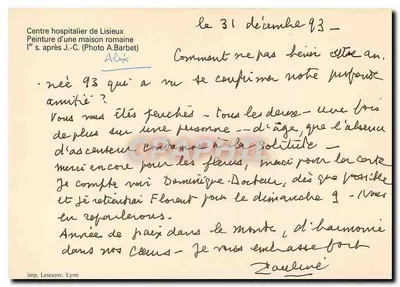 Centre hospitalier de Lisieux
Peinture d'une maison romaine
1er s. après J.-C. (Photo A.Barbet)
Alix
le 31 décembre 93 –
Comment ne pas bénir cette an.
née 93 qui a vu se confirmer notre profonde
amitié ?
Vous vous êtes penchés – tous les deux – une fois
de plus sur une personne – d'âge, que l'absence
d'ascenseur condamne à la solitude –
merci encore pour les fleurs, merci pour la carte
Je compte voir Dominique-Docteur, dès que possible
et je retiendrai Florent pour le dimanche 9 – Nous
en reparlerons.
Année de paix dans le monde, d'harmonie
dans nos cœurs – Je vous embrasse fort
Pauline
imp. Lescuyer, Lyon